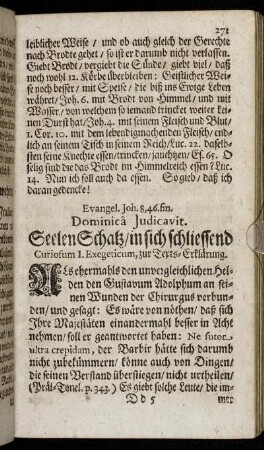 271
leiblicher Weise / und ob auch gleich der Gerechte
nach Brodte gehet / so ist er darumb nicht verlassen.
Giebt Brodt / vergiebt die Sünde / giebt viel / daß
noch wohl 12. Körbe überbleiben: Geistlicher Wei-
se noch besser / mit Speise / die biß ins Ewige Leben
währet / Joh. 6. mit Brodt von Himmel / und mit
Wasser / von welchem jemand trincket weiter kei-
nen Durst hat / Joh. 4. mit seinem Fleisch und Blut /
1. Cor. 10. mit dem lebendigmachenden Fleisch / end-
lich an seinem Tisch in seinem Reich / Luc. 22. daselb-
sten seine Knechte essen / trincken / jauchtzen / Es. 65. O
selig sind die das Brodt im Himmelreich essen? Luc.
14. Nun ich soll auch da essen. So gieb / daß ich
daran gedencke!
Evangel. Joh. 8, 46. fin.
Dominicâ Judicavit.
Seelen Schatz / in sich schliessend
Curiosum I. Exegeticum, zur Texts-Erklärung.
Als ehermahls den unvergleichlichen Hel-
den den Gustavum Adolphum an sei-
nen Wunden der Chirurgus verbun-
den / und gesagt: Es wäre von nöthen / daß sich
Ihre Majestäten einandermahl besser in Acht
nehmen / soll er geantwortet haben: Ne sutor
ultra crepidam, der Barbir hätte sich darumb
nicht zubekümmern / könne auch von Dingen /
die seinen Verstand überstiegen / nicht urtheilen /
(Præl-Tonel. p. 343.) Es giebt solche Leute / die im-
Dd 5 mer